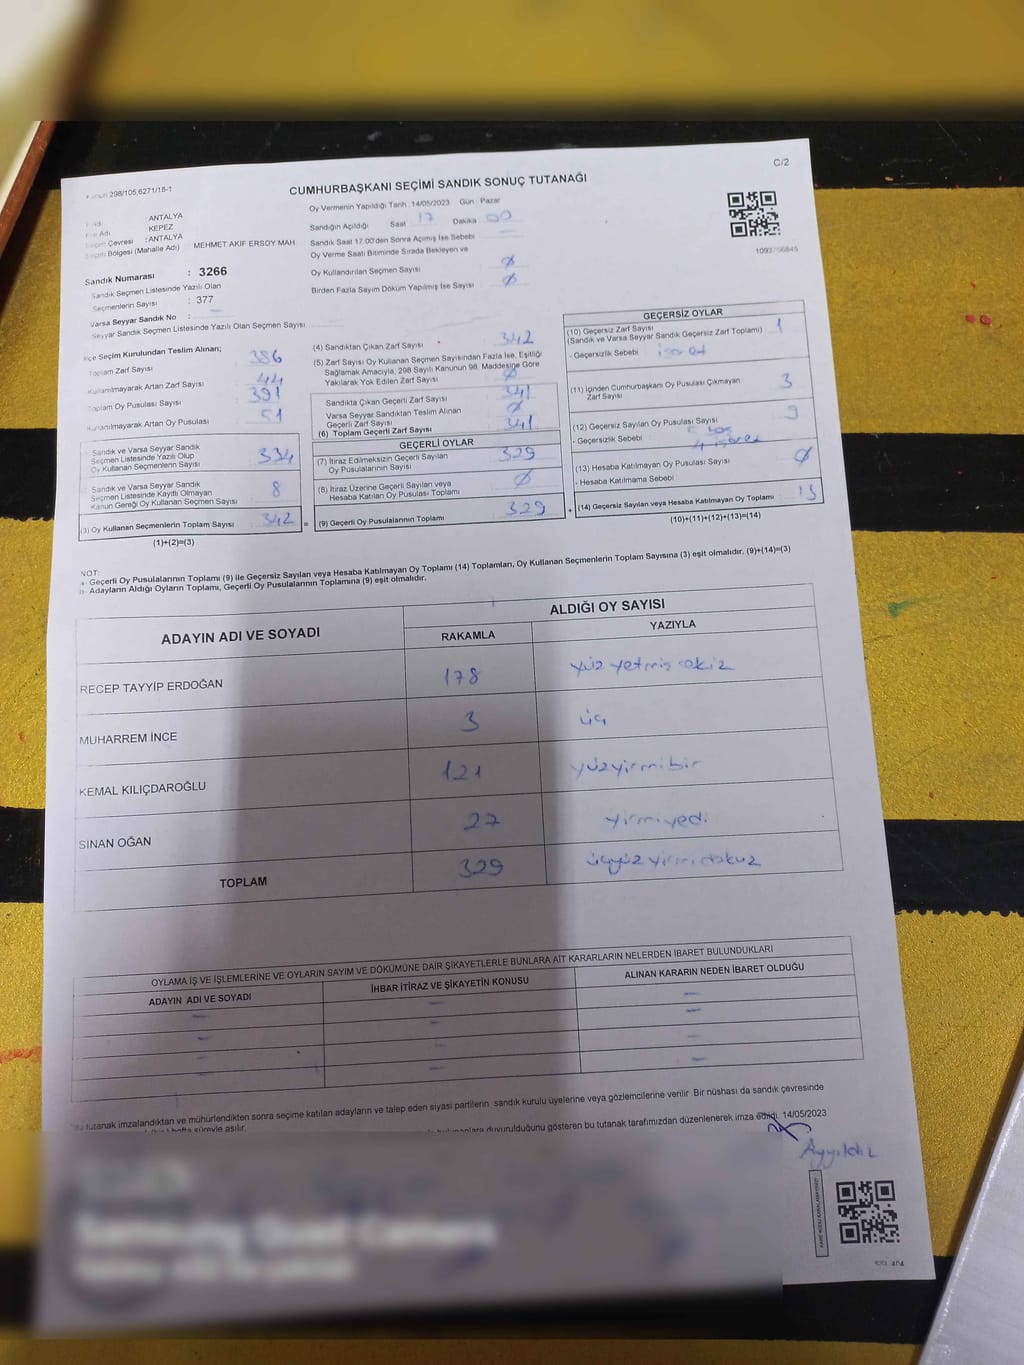 298/105,6271/18-1
C/2
CUMHURBAŞKANI SEÇİMİ SANDIK SONUÇ TUTANAĞI
: ANTALYA
KEPEZ
Çevresi : ANTALYA
Bölgesi (Mahalle Adı) MEHMET AKİF ERSOY MAH
Sandık Numarası : 3266
Sandık Seçmen Listesinde Yazılı Olan
Seçmenlerin Sayısı : 377
Varsa Seyyar Sandık No : -
Seyyar Sandık Seçmen Listesinde Yazılı Olan Seçmen Sayısı
Oy Vermenin Yapıldığı Tarih :14/05/2023 Gün Pazar
Sandığın Açıldığı Saat 17 Dakika 00
Sandık Saat 17:00'den Sonra Açımış İse Sebebi -
Oy Verme Saati Bitiminde Sırada Bekleyen ve
Oy Kullandırılan Seçmen Sayısı Ø
Birden Fazla Sayım Döküm Yapılmış İse Sayısı Ø
İlçe Seçim Kurulundan Teslim Alınan;
Toplam Zarf Sayısı 386
Kullanılmayarak Artan Zarf Sayısı 44
Toplam Oy Pusulası Sayısı 391
Kullanılmayarak Artan Oy Pusulası 51
Sandık ve Varsa Seyyar Sandık
Seçmen Listesinde Yazılı Olup
Oy Kullanan Seçmenlerin Sayısı 334
Sandık ve Varsa Seyyar Sandık
Seçmen Listesinde Kayıtlı Olmayan
Kanun Gereği Oy Kullanan Seçmen Sayısı 8
(3) Oy Kullanan Seçmenlerin Toplam Sayısı 342 =
(1)+(2)=(3)
(4) Sandıktan Çıkan Zarf Sayısı 342
(5) Zarf Sayısı Oy Kullanan Seçmen Sayısından Fazla İse, Eşitliği
Sağlamak Amacıyla, 298 Sayılı Kanunun 98. Maddesine Göre
Yakılarak Yok Edilen Zarf Sayısı Ø
Sandıkta Çıkan Geçerli Zarf Sayısı 341
Varsa Seyyar Sandıktan Teslim Alınan
Geçerli Zarf Sayısı Ø
(6) Toplam Geçerli Zarf Sayısı 341
GEÇERLİ OYLAR
(7) İtiraz Edilmeksizin Geçerli Sayılan
Oy Pusulalarının Sayısı 329
(8) İtiraz Üzerine Geçerli Sayılan veya
Hesaba Katılan Oy Pusulası Toplamı Ø
(9) Geçerli Oy Pusulalarının Toplamı 329 +
GEÇERSİZ OYLAR
(10) Geçersiz Zarf Sayısı
(Sandık ve Varsa Seyyar Sandık Geçersiz Zarf Toplamı) 1
- Geçersizlik Sebebi işaret
(11) İçinden Cumhurbaşkanı Oy Pusulası Çıkmayan
Zarf Sayısı 3
(12) Geçersiz Sayılan Oy Pusulası Sayısı 9
- Geçersizlik Sebebi 5 boş
4 işaret
(13) Hesaba Katılmayan Oy Pusulası Sayısı Ø
- Hesaba Katılmama Sebebi
(14) Geçersiz Sayılan veya Hesaba Katılmayan Oy Toplamı 13
(10)+(11)+(12)+(13)=(14)
NOT:
Geçerli Oy Pusulalarının Toplamı (9) ile Geçersiz Sayılan veya Hesaba Katılmayan Oy Toplamı (14) Toplamları, Oy Kullanan Seçmenlerin Toplam Sayısına (3) eşit olmalıdır. (9)+(14)=(3)
Adayların Aldığı Oyların Toplamı, Geçerli Oy Pusulalarının Toplamına (9) eşit olmalıdır.
ADAYIN ADI VE SOYADI ALDIĞI OY SAYISI
RAKAMLA YAZIYLA
RECEP TAYYİP ERDOĞAN 178 yüz yetmiş sekiz
MUHARREM İNCE 3 üç
KEMAL KILIÇDAROĞLU 121 yüzyirmibir
SİNAN OĞAN 27 yirmiyedi
TOPLAM 329 üçyüz yirmidokuz
OYLAMA İŞ VE İŞLEMLERİNE VE OYLARIN SAYIM VE DÖKÜMÜNE DAİR ŞİKAYETLERLE BUNLARA AİT KARARLARIN NELERDEN İBARET BULUNDUKLARI
ADAYIN ADI VE SOYADI İHBAR İTİRAZ VE ŞİKAYETİN KONUSU ALINAN KARARIN NEDEN İBARET OLDUĞU
- - -
- - -
- - -
- - -
tutanak imzalandıktan ve mühürlendikten sonra seçime katılan adayların ve talep eden siyasi partilerin sandık kurulu üyelerine veya gözlemcilerine verilir. Bir nüshası da sandık çevresinde
hafta süreyle asılır. duyurulduğunu gösteren bu tutanak tarafımızdan düzenlenerek imza edildi. 14/05/2023
Ayyıldız